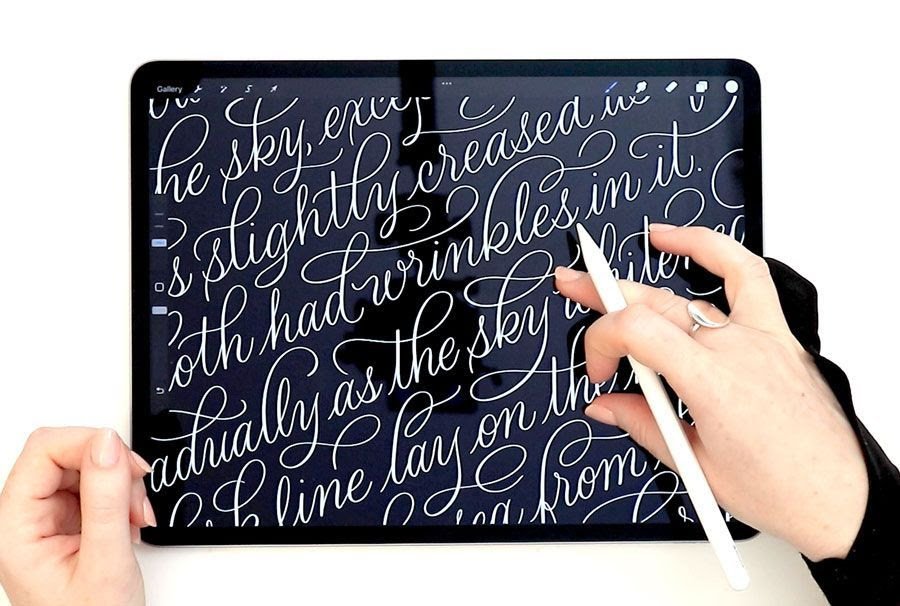 Gallery
he sky, excep
s slightly creased as
oth had wrinkles in it.
adually as the sky white
line lay on the
sea from